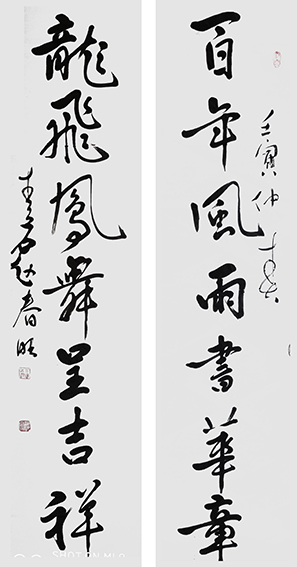 百年風雨書華章
壬寅仲春
龍飛鳳舞呈吉祥
春旺
SHOT ON